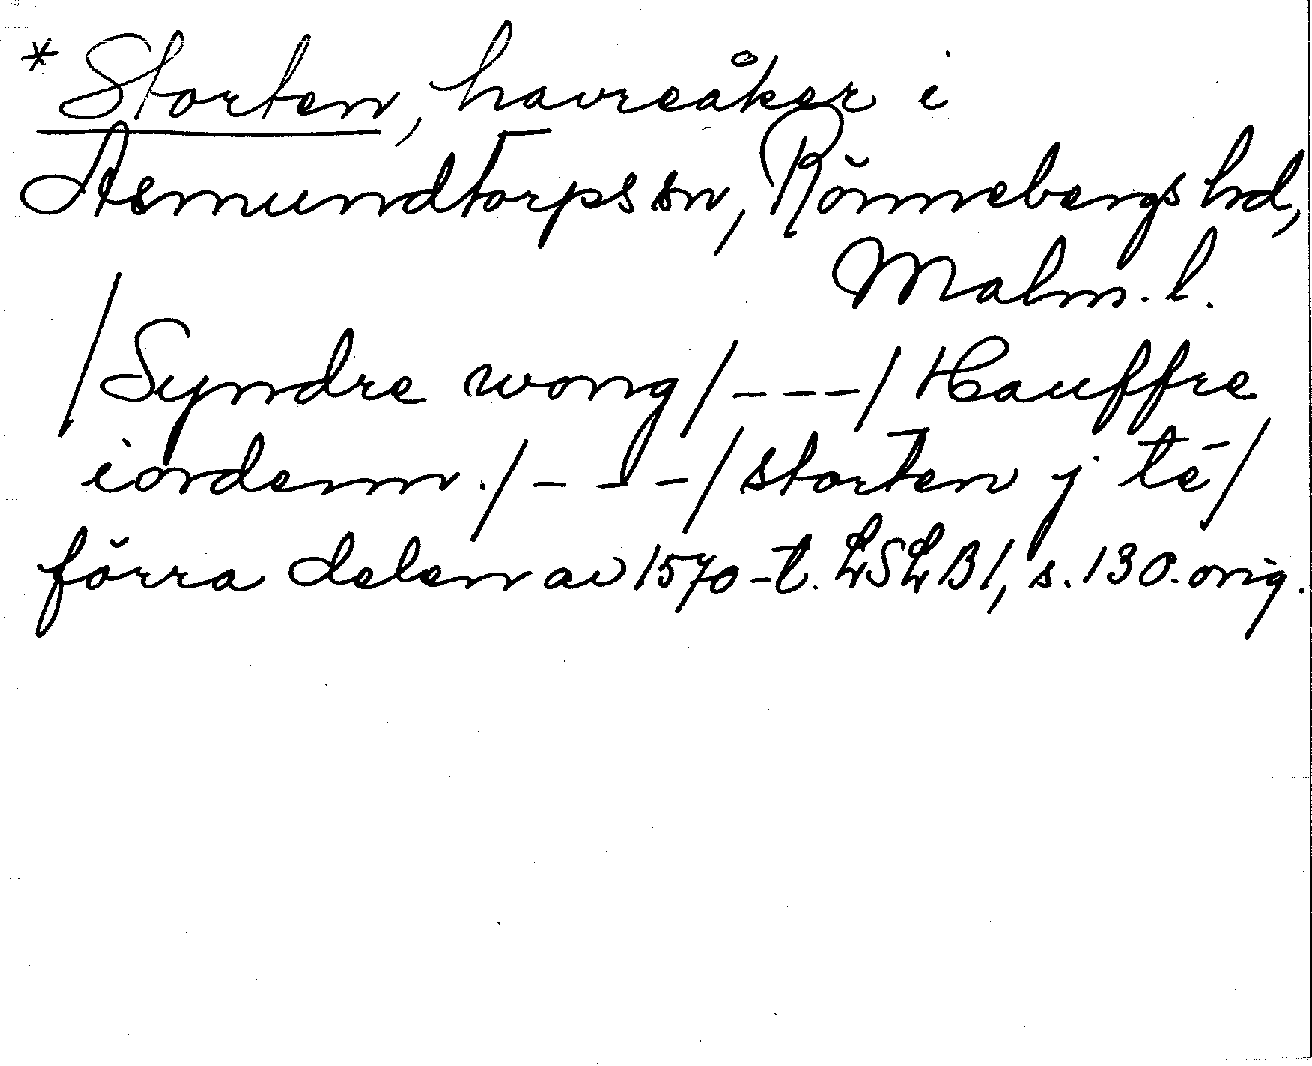 * Storten, havreåker i
Asmundtorps sn, Rönnebergs hd,
Malm. l.
/Syndre wong/---/Hauffre
iordenn./---/storten j té/
förra delen av 1570-t. LSLB1, s. 130. orig.